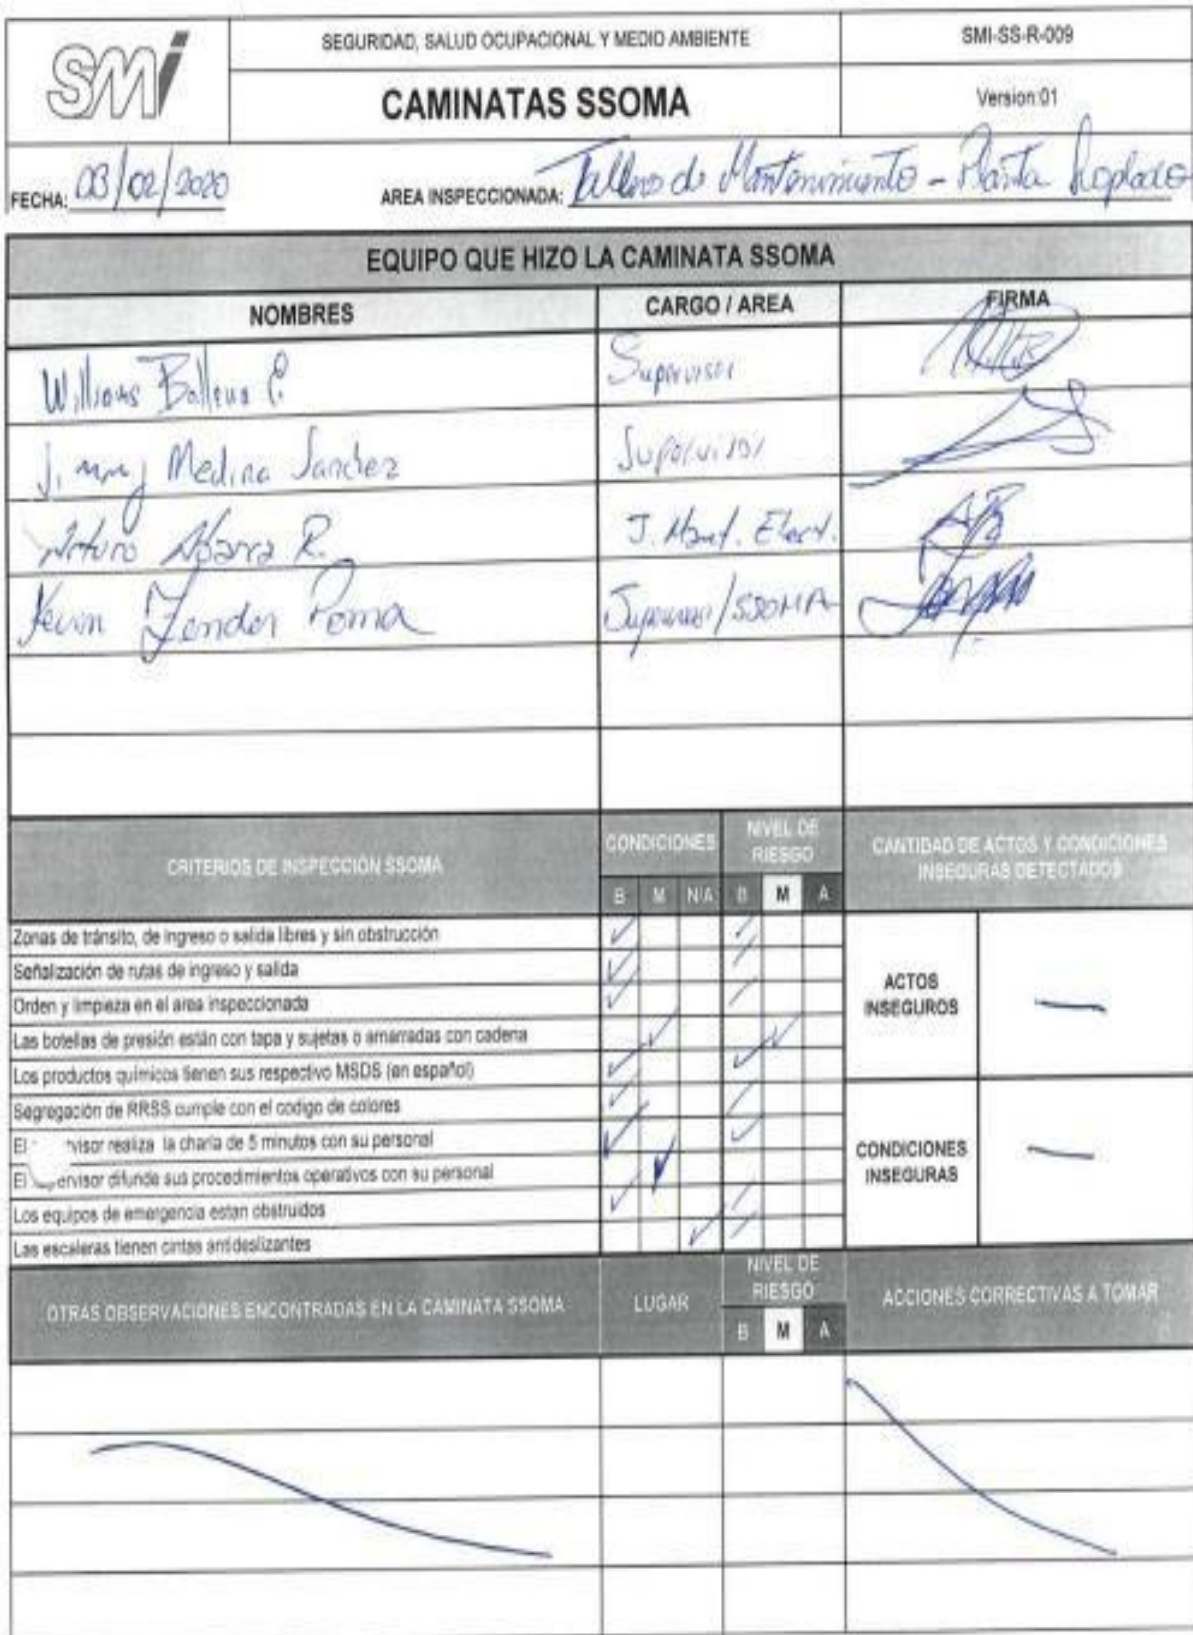 SMI
SEGURIDAD, SALUD OCUPACIONAL Y MEDIO AMBIENTE
SMI-SS-R-009
CAMINATAS SSOMA
Version:01
FECHA: 03/02/2020
AREA INSPECCIONADA: de Mantenimiento - Planta
EQUIPO QUE HIZO LA CAMINATA SSOMA
NOMBRES CARGO / AREA FIRMA
Williams P. Supervisor
Jimmy Medina Sanchez Supervisor
Arturo R. J. Mant. Elect.
Kevin Poma Supervisor/SSOMA
CRITERIOS DE INSPECCIÓN SSOMA
CONDICIONES
NIVEL DE RIESGO
CANTIDAD DE ACTOS Y CONDICIONES
INSEGURAS DETECTADOS
B M N/A B M A
Zonas de tránsito, de ingreso o salida libres y sin obstrucción
Señalización de rutas de ingreso y salida
Orden y limpieza en el area inspeccionada
ACTOS
INSEGUROS
Las botellas de presión están con tapa y sujetas o amarradas con cadena
Los productos químicos tienen sus respectivo MSDS (en español)
Segregación de RRSS cumple con el codigo de colores
El visor realiza la charla de 5 minutos con su personal
El ervisor difunde sus procedimientos operativos con su personal
CONDICIONES
INSEGURAS
Los equipos de emergencia estan obstruidos
Las escaleras tienen cintas antideslizantes
OTRAS OBSERVACIONES ENCONTRADAS EN LA CAMINATA SSOMA
LUGAR
NIVEL DE
RIESGO
ACCIONES CORRECTIVAS A TOMAR
B M A